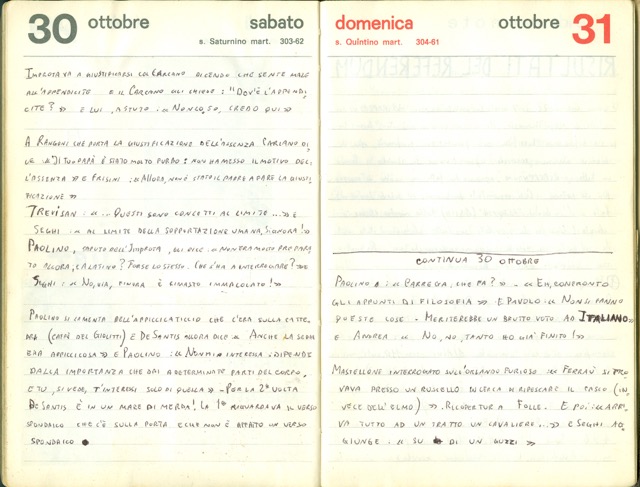 30 ottobre sabato
s. Saturnino mart. 303-62
IMPROTA VA A GIUSTIFICARSI COL CARCANO DICENDO CHE SENTE MALE
ALL'APPENDICITE E IL CARCANO GLI CHIEDE: "DOV'È L'APPENDI-
CITE? » E LUI, ASTUTO: « NON LO SO, CREDO QUI »
A RANGONI CHE PORTA LA GIUSTIFICAZIONE DELL'ASSENZA CARCANO DI-
CE « IL TUO PAPÀ È STATO MOLTO FURBO: NON HA MESSO IL MOTIVO DEL-
L'ASSENZA » E FRISINI: « ALLORA, NON È STATO IL PADRE A FARE LA GIUSTI-
FICAZIONE »
TREVISAN: « ... QUESTI SONO CONCETTI AL LIMITE ... » E
SEGHI: « AL LIMITE DELLA SOPPORTAZIONE UMANA, SIGNORA! »
PAOLINO, DELL'IMPROTA, GLI DICE: « NON ERA MOLTO PREPARA-
TO ALLORA, CALATINO? FORSE LO STESSO. CHE S'HA A INTERROGARE? »
SEGHI: « NO, VIA, PIVIRA È RIMASTO IMMACOLATO! »
PAOLINO SI LAMENTA DELL'APPICCICATICCIO CHE C'ERA SULLA CATTE-
DRA (CAFFÈ DEL GIOLITTI) E DE SANTIS ALLORA DICE « ANCHE LA SEDIA
ERA APPICCICOSA » E PAOLINO: « NON MI INTERESSA: DIPENDE
DALLA IMPORTANZA CHE DAI A DETERMINATE PARTI DEL CORPO.
E TU, SI VEDE, T'INTERESSI SOLO DI QUELLA » - PER LA 2ª VOLTA
DE SANTIS È IN UN MARE DI MERDA! LA 1ª RIGUARDAVA IL VERSO
SPONDAICO CHE C'È SULLA PORTA E CHE NON È AFFATTO UN VERSO
SPONDAICO
domenica ottobre 31
s. Quintino mart. 304-61
CONTINUA 30 OTTOBRE
PAOLINO A: « BARREGA, CHE FA? » - « EH, CONFRONTO
GLI APPUNTI DI FILOSOFIA » E PAOLO: « NON SI FANNO
QUESTE COSE - MERITEREBBE UN BRUTTO VOTO AD ITALIANO »
E ANDREA: « NO, NO, TANTO HO GIÀ FINITO! »
MASTELLONE INTERROGATO SULL'ORLANDO FURIOSO: « FERRAÙ SI TRO-
VAVA PRESSO UN RUSCELLO IN CERCA DI RIPESCARE IL CASCO (IN-
VECE DELL'ELMO) ». RICOPERTURA FOLLE. E POI: « ARRI-
VA TUTTO AD UN TRATTO UN CAVALIERE ... » E SEGHI AG-
GIUNGE: « SU DI UN GUZZI »